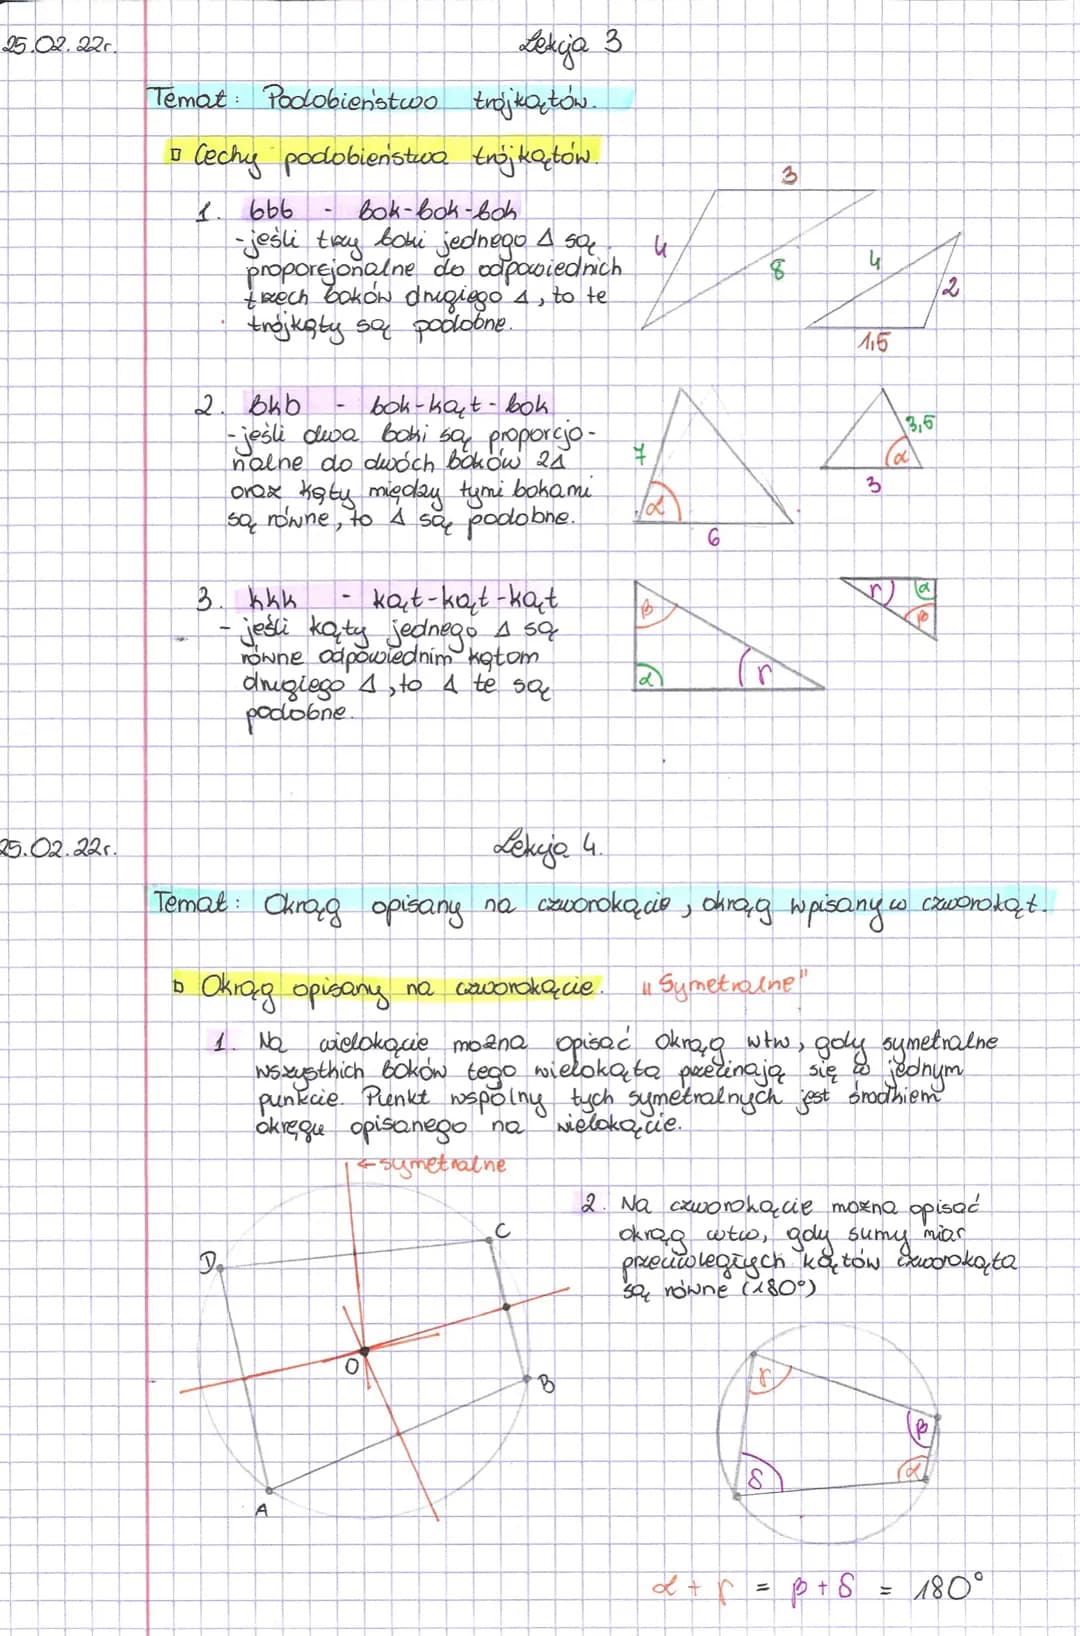 25.02.22r. Lekcja 3
Temat: Podobieństwo trójkątów.
Cechy podobieństwa trójkątów.
1. bbb - bok-bok-bok
- jeśli trzy boki jednego Δ są
proporcjonalne do odpowiednich
trzech boków drugiego Δ, to te
trójkąty są podobne.
3
4
8
4
2
1,5
2. bkb - bok-kąt-bok
- jeśli dwa boki są proporcjo-
nalne do dwóch boków 2Δ
oraz kąty między tymi bokami
są równe, to Δ są podobne.
7
α
6
3,5
α
3
3. kkk - kąt-kąt-kąt
- jeśli kąty jednego Δ są
równe odpowiednim kątom
drugiego Δ, to Δ te są
podobne.
β
α
r
r
α
β
25.02.22r. Lekcja 4.
Temat: Okrąg opisany na czworokącie, okrąg wpisany w czworokąt.
Okrąg opisany na czworokącie. "Symetralne"
1. Na wielokącie można opisać okrąg wtw, gdy symetralne
wszystkich boków tego wielokąta przecinają się w jednym
punkcie. Punkt wspólny tych symetralnych jest środkiem
okręgu opisanego na wielokącie.
← symetralne
D
C
O
B
A
2. Na czworokącie można opisać
okrąg wtw, gdy sumy miar
przeciwległych kątów czworokąta
są równe (180°)
r
β
δ
α
α + r = β + δ = 180°